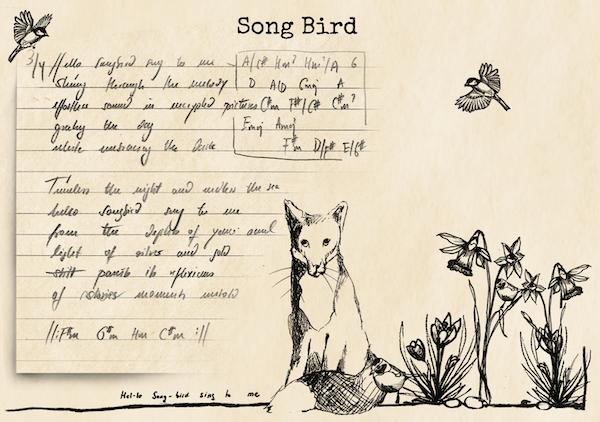 Song Bird
3/4 Hello songbird sing to me
A/C# Hm7 Hm7/A G
Shining through the melody
D A/D Cmaj A
effortless sound in pictures
C#m F#/C# C#m7
the sky
Emaj Amaj
embracing the
F#m D/F# E/G#
Timeless the night and the sea
hello songbird sing to me
from the depths of your soul
light of silver and gold
paints its
of moments untold
//:F#m G#m Hm C#m ://
Hel-lo Song-bird sing to me